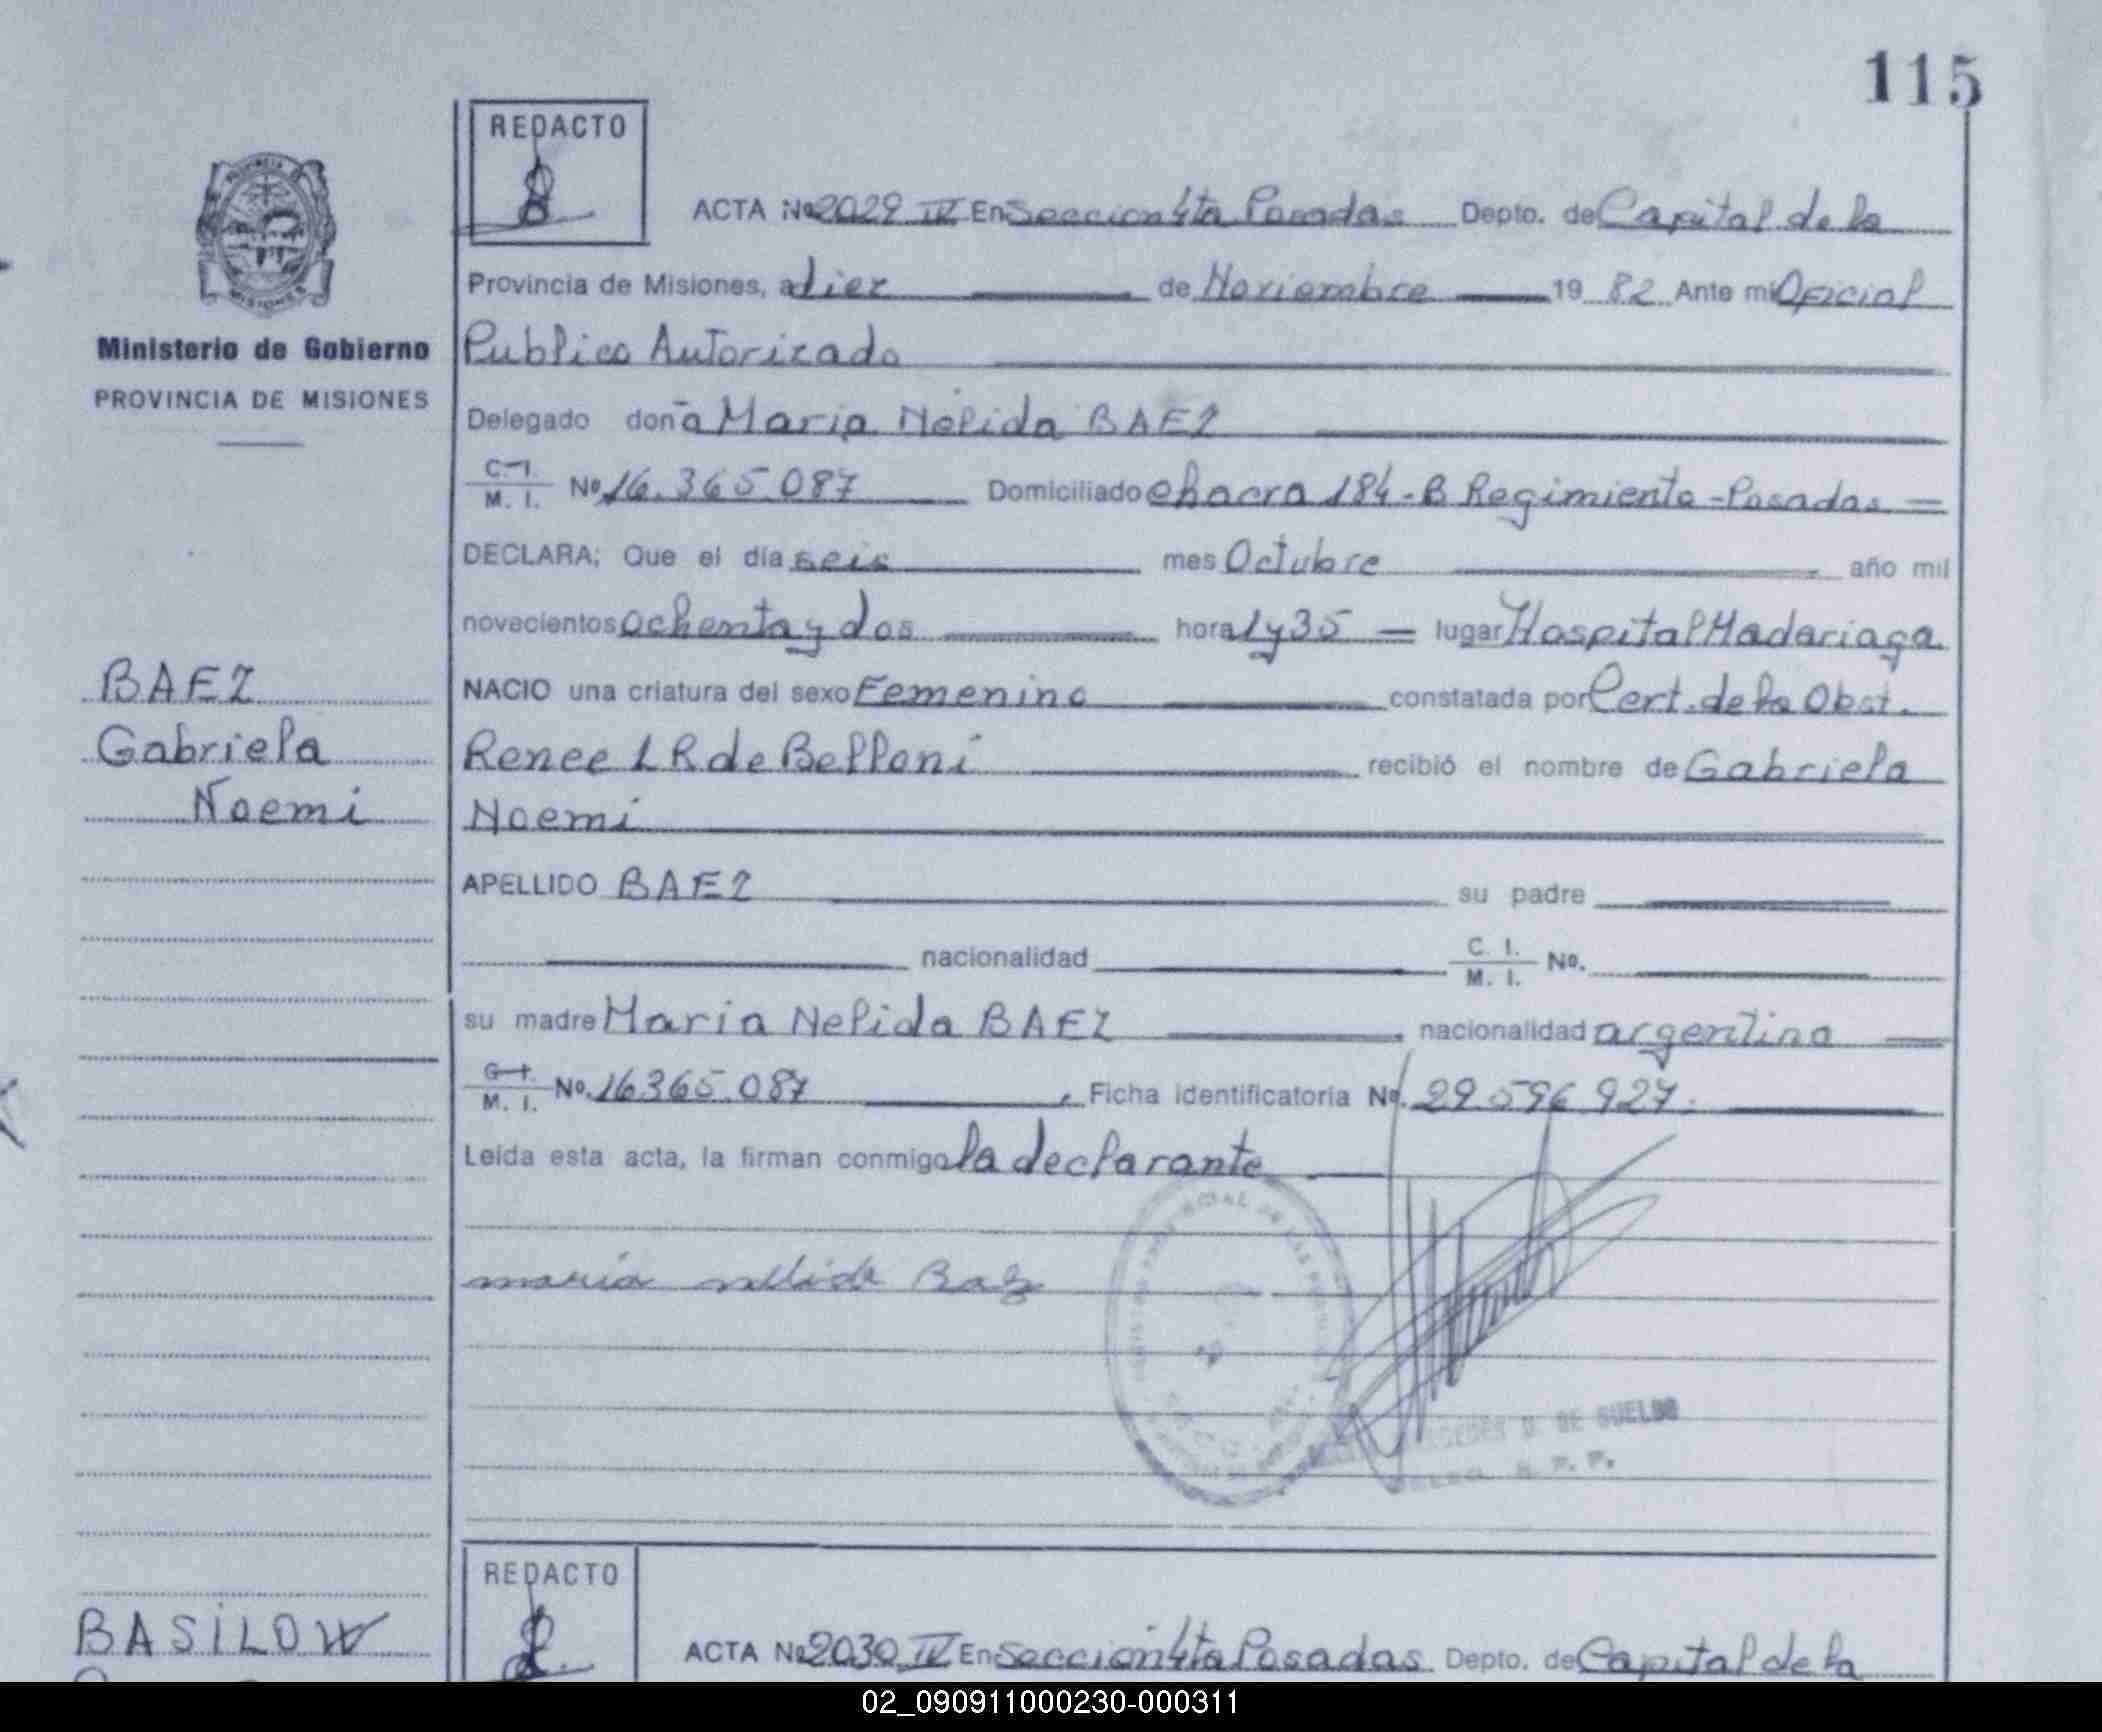 115
REDACTO
ACTA Nº 2029 IV En Seccion 4ta Posadas Depto. de Capital de la
Provincia de Misiones, a diez de Noviembre 1982 Ante mi Oficial
Publico Autorizado
Delegado doña Maria Nélida BAEZ
C. I.
M. I. Nº 16.365.087 Domiciliado chacra 184-B Regimiento-Posadas =
DECLARA; Que el día seis mes Octubre año mil
novecientos ochenta y dos hora 1 y 35 = lugar Hospital Madariaga
NACIO una criatura del sexo Femenino constatada por Cert. de la Obst.
Renee L R de Belloni recibió el nombre de Gabriela
Noemi
APELLIDO BAEZ su padre
nacionalidad C. I.
M. I. Nº.
su madre Maria Nelida BAEZ nacionalidad argentina
C. I.
M. I. Nº. 16365.087 Ficha identificatoria Nº. 29.596.927.
Leída esta acta, la firman conmigo la declarante
maria nelida Baez
D. DE SUELDO
R. P. P.
PROVINCIA
MISIONES
Ministerio de Gobierno
PROVINCIA DE MISIONES
BAEZ
Gabriela
Noemi
REDACTO
BASILOW
ACTA Nº 2030 IV En Seccion 4ta Posadas Depto. de Capital de la
02_090911000230-000311